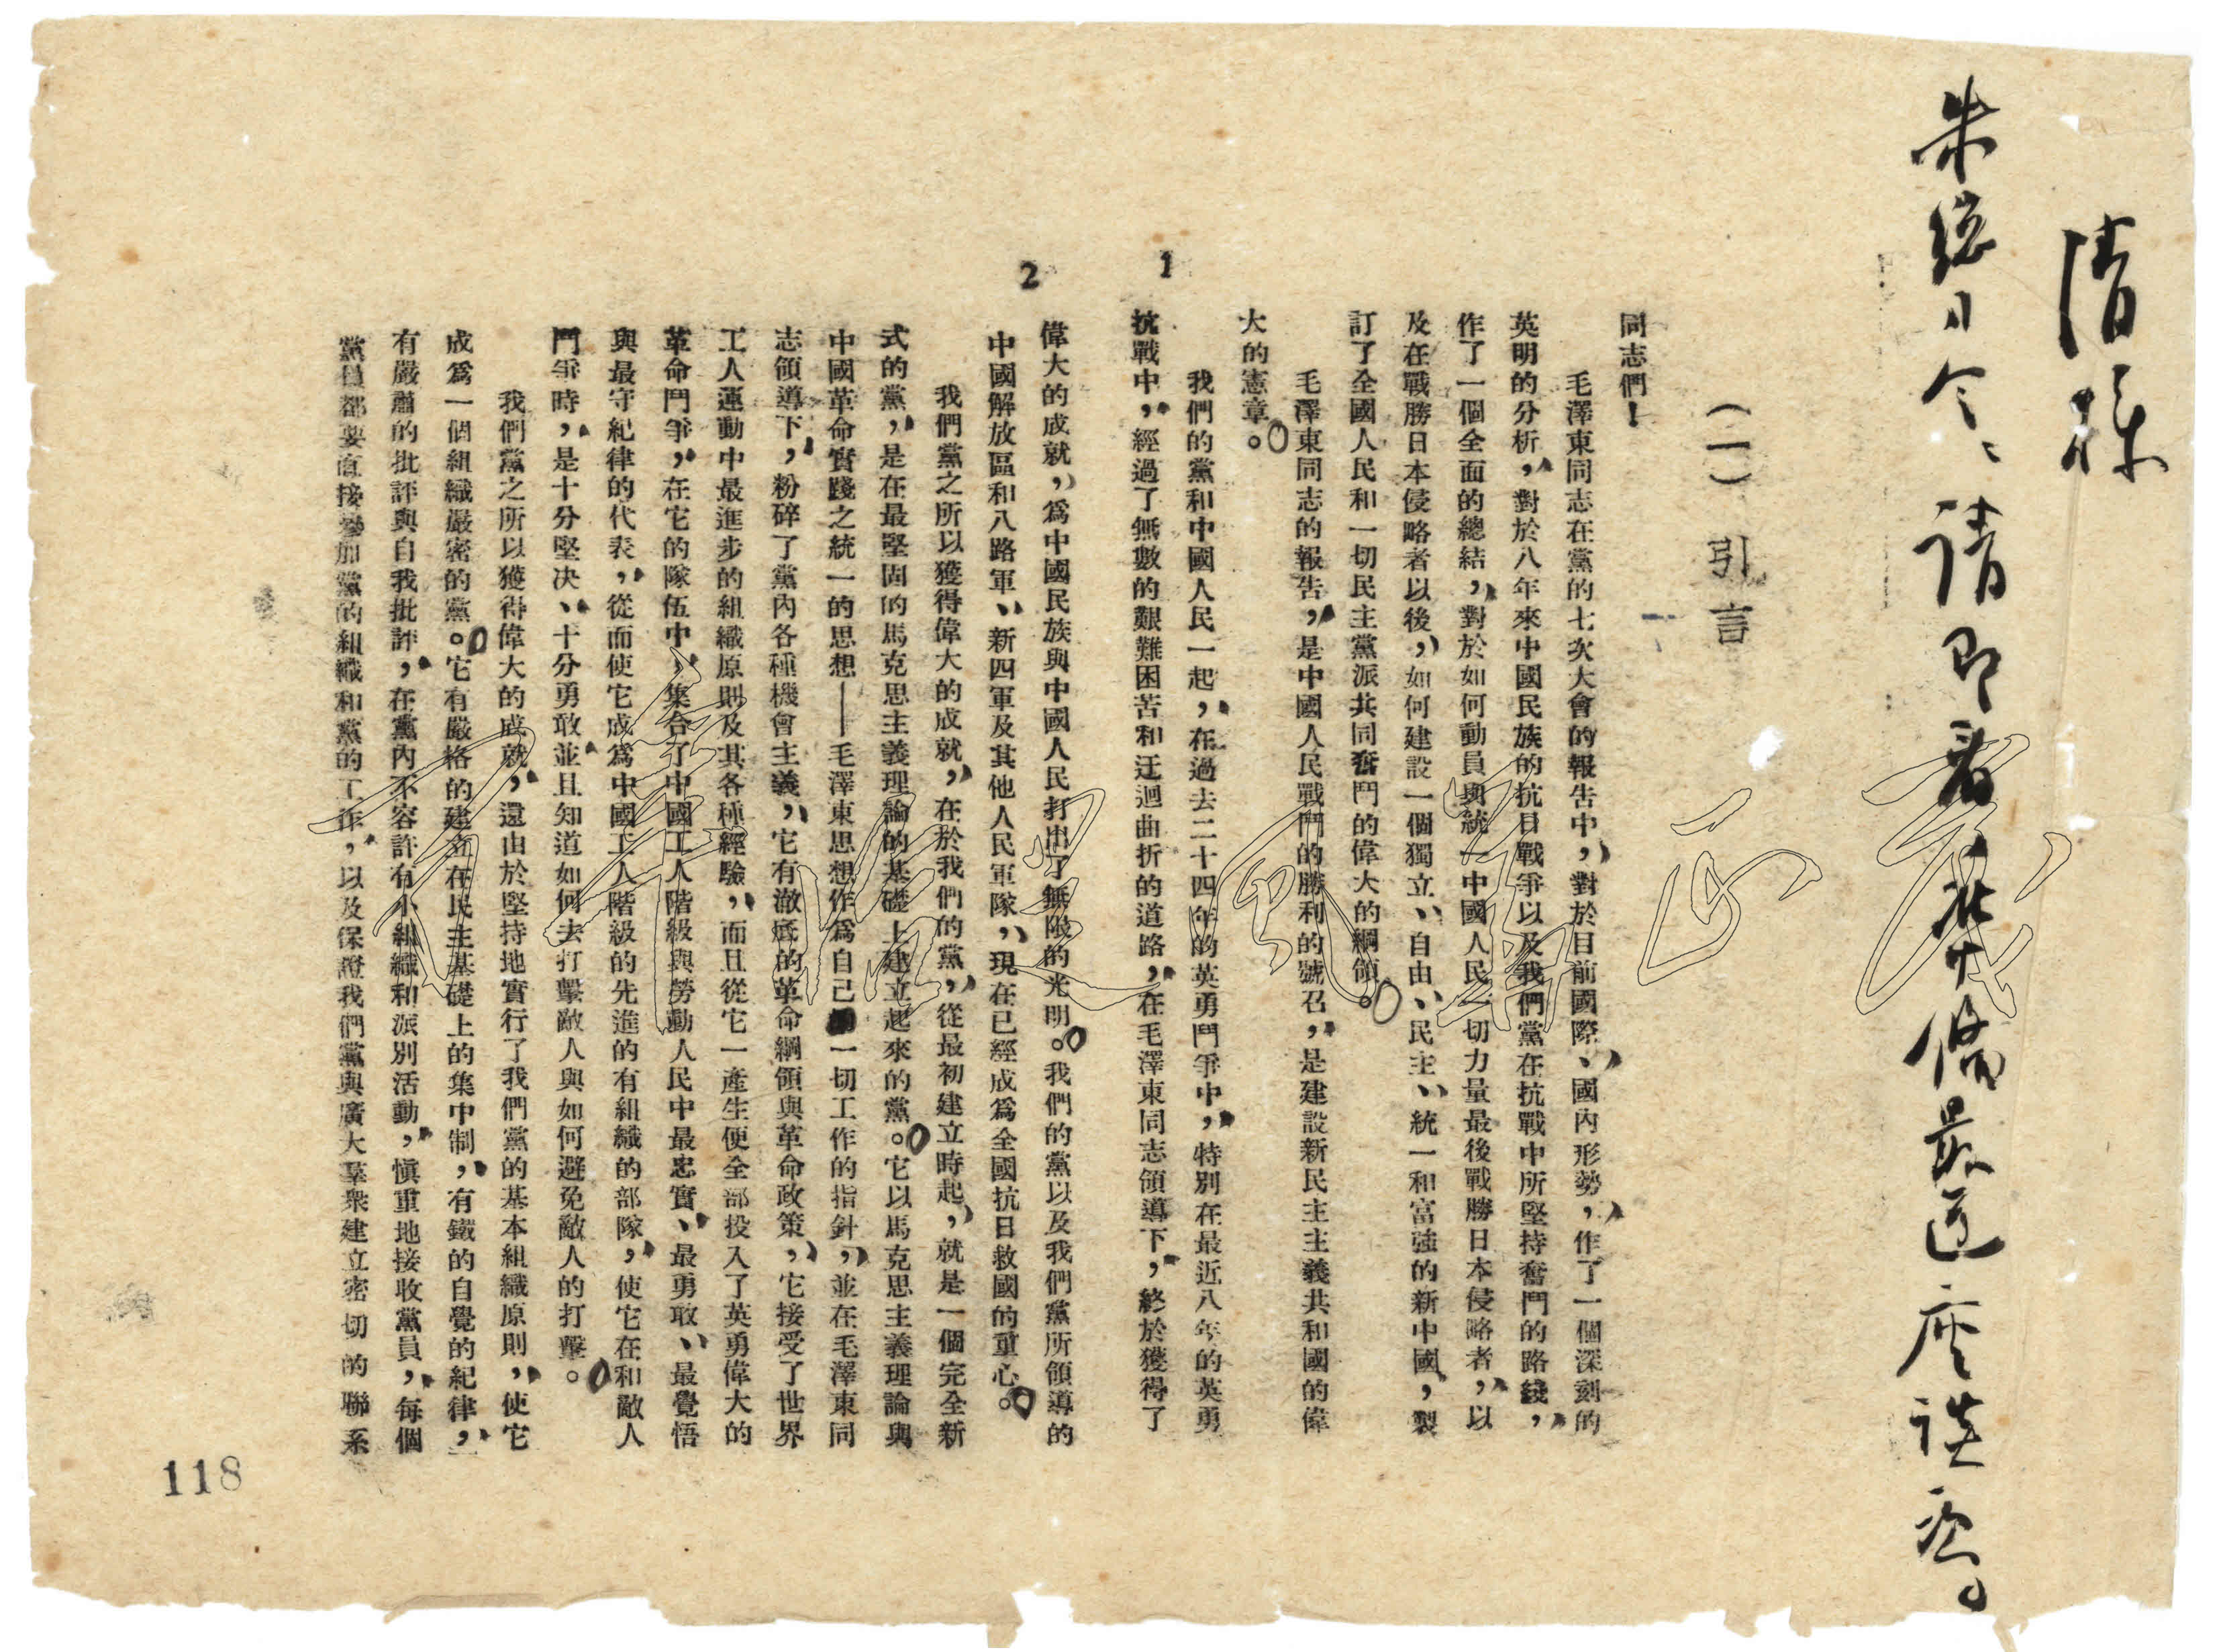 清樣
朱總司令、請即看並修最速座談家。
(一) 引言
同志們！
毛澤東同志在黨的七次大會的報告中，對於目前國際、國內形勢，作了一個深刻的
英明的分析，對於八年來中國民族的抗日戰爭以及我們黨在抗戰中所堅持奮鬥的路綫，
作了一個全面的總結，對於如何動員與統一中國人民一切力量最後戰勝日本侵略者，以
及在戰勝日本侵略者以後，如何建設一個獨立、自由、民主、統一和富強的新中國，製
訂了全國人民和一切民主黨派共同奮鬥的偉大的綱領。
毛澤東同志的報告，是中國人民戰鬥的勝利的號召，是建設新民主主義共和國的偉
大的憲章。
我們的黨和中國人民一起，在過去二十四年的英勇鬥爭中，特別在最近八年的英勇
抗戰中，經過了無數的艱難困苦和迂迴曲折的道路，在毛澤東同志領導下，終於獲得了
1
偉大的成就，爲中國民族與中國人民打出了無限的光明。我們的黨以及我們黨所領導的
2
中國解放區和八路軍、新四軍及其他人民軍隊，現在已經成爲全國抗日救國的重心。
我們黨之所以獲得偉大的成就，在於我們的黨，從最初建立時起，就是一個完全新
式的黨，是在最堅固的馬克思主義理論的基礎上建立起來的黨。它以馬克思主義理論與
中國革命實踐之統一的思想——毛澤東思想作爲自己一切工作的指針，並在毛澤東同
志領導下，粉碎了黨內各種機會主義，它有澈底的革命綱領與革命政策，它接受了世界
工人運動中最進步的組織原則及其各種經驗，而且從它一產生便全部投入了英勇偉大的
革命鬥爭，在它的隊伍中，集合了中國工人階級與勞動人民中最忠實、最勇敢、最覺悟
與最守紀律的代表，從而使它成爲中國工人階級的先進的有組織的部隊，使它在和敵人
鬥爭時，是十分堅决、十分勇敢並且知道如何去打擊敵人與如何避免敵人的打擊。
我們黨之所以獲得偉大的成就，還由於堅持地實行了我們黨的基本組織原則，使它
成爲一個組織嚴密的黨。它有嚴格的建立在民主基礎上的集中制，有鐵的自覺的紀律，
有嚴肅的批評與自我批評，在黨內不容許有小組織和派別活動，慎重地接收黨員，每個
黨員都要直接參加黨的組織和黨的工作，以及保證我們黨與廣大羣衆建立密切的聯系
118